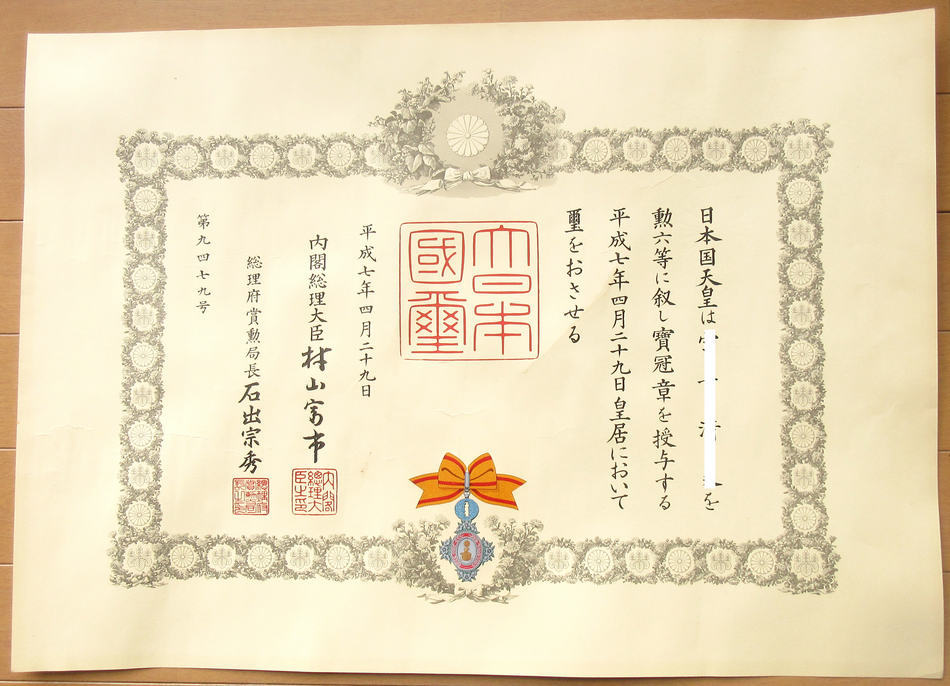 日本国天皇は を
勲六等に叙し寶冠章を授与する
平成七年四月二十九日皇居において
璽をおさせる
大日本
國璽
平成七年四月二十九日
内閣総理大臣 村山富市
内閣総理大臣之印
総理府賞勲局長 石出宗秀
第九四七九号